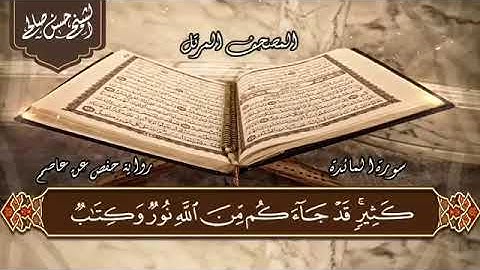 الشيخ حسن صالح
المصحف المرتل
سورة المائدة
رواية حفص عن عاصم
كَثِيرٍۚ قَدْ جَآءَكُم مِّنَ ٱللَّهِ نُورٌ وَكِتَٰبٌ